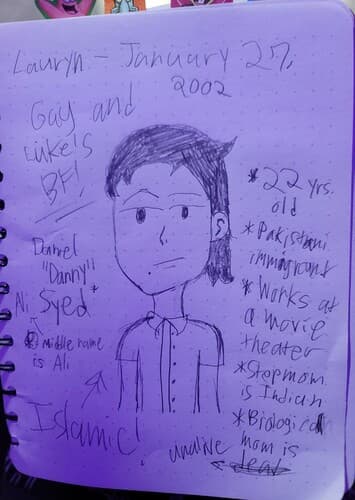 Lauryn - January 27,
2002
Gay and
Luke's
BF!
Daniel
"Danny"
Ali Syed*
* middle name
is Ali
Islamic!
*22 yrs.
old
*Pakistani
immigrant
*Works at
a movie
theater
*Stepmom
is Indian
*Biological
mom is